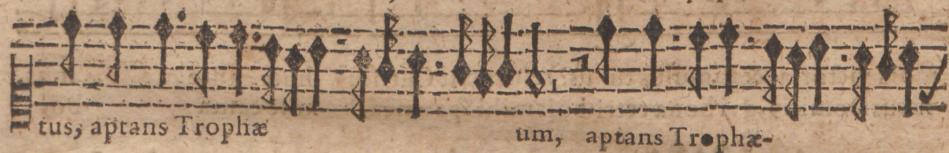 tus, aptans Trophæ um, aptans Trophæ-